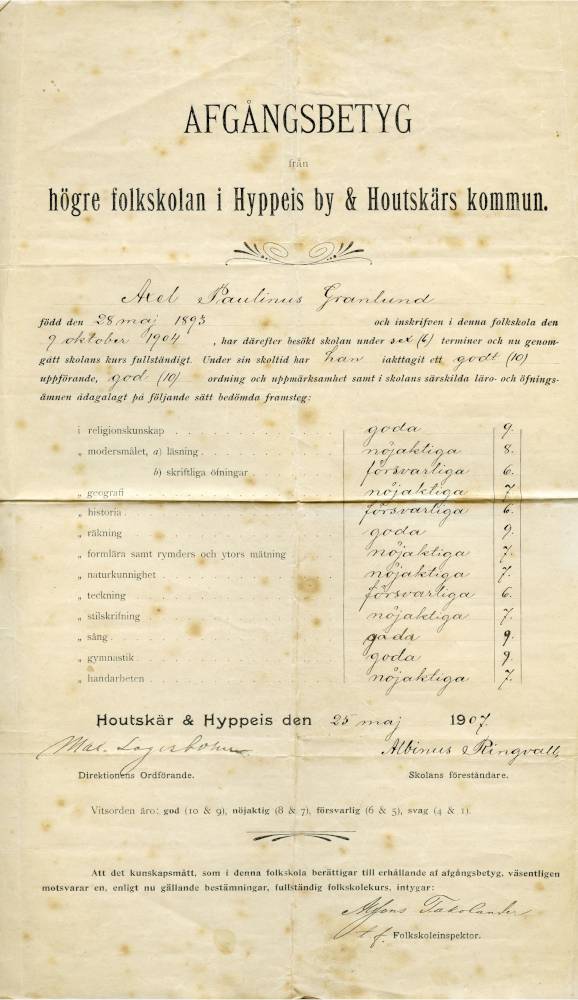 AFGÅNGSBETYG
från
högre folkskolan i Hyppeis by & Houtskärs kommun.
Axel Paulinus Granlund
född den 28 maj 1893 och inskrifven i denna folkskola den
9 oktober 1904, har därefter besökt skolan under sex (6) terminer och nu genom-
gått skolans kurs fullständigt. Under sin skoltid har han iakttagit ett godt (10)
uppförande, god (10) ordning och uppmärksamhet samt i skolans särskilda läro- och öfnings-
ämnen ådagalagt på följande sätt bedömda framsteg:
i religionskunskap goda 9.
„ modersmålet, a) läsning nöjaktiga 8.
b) skriftliga öfningar försvarliga 6.
„ geografi nöjaktiga 7
„ historia försvarliga 6.
„ räkning goda 9.
„ formlära samt rymders och ytors mätning nöjaktiga 7.
„ naturkunnighet nöjaktiga 7.
„ teckning försvarliga 6.
„ stilskrifning nöjaktiga 7.
„ sång goda 9.
„ gymnastik goda 9.
„ handarbeten nöjaktiga 7.
Houtskär & Hyppeis den 25 maj 1907.
Albinus Ringvall
Direktionens Ordförande. Skolans föreståndare.
Vitsorden äro: god (10 & 9), nöjaktig (8 & 7), försvarlig (6 & 5), svag (4 & 1).
Att det kunskapsmått, som i denna folkskola berättigar till erhållande af afgångsbetyg, väsentligen
motsvarar en, enligt nu gällande bestämningar, fullständig folkskolekurs, intygar:
Alfons Takolander
t.f. Folkskoleinspektor.